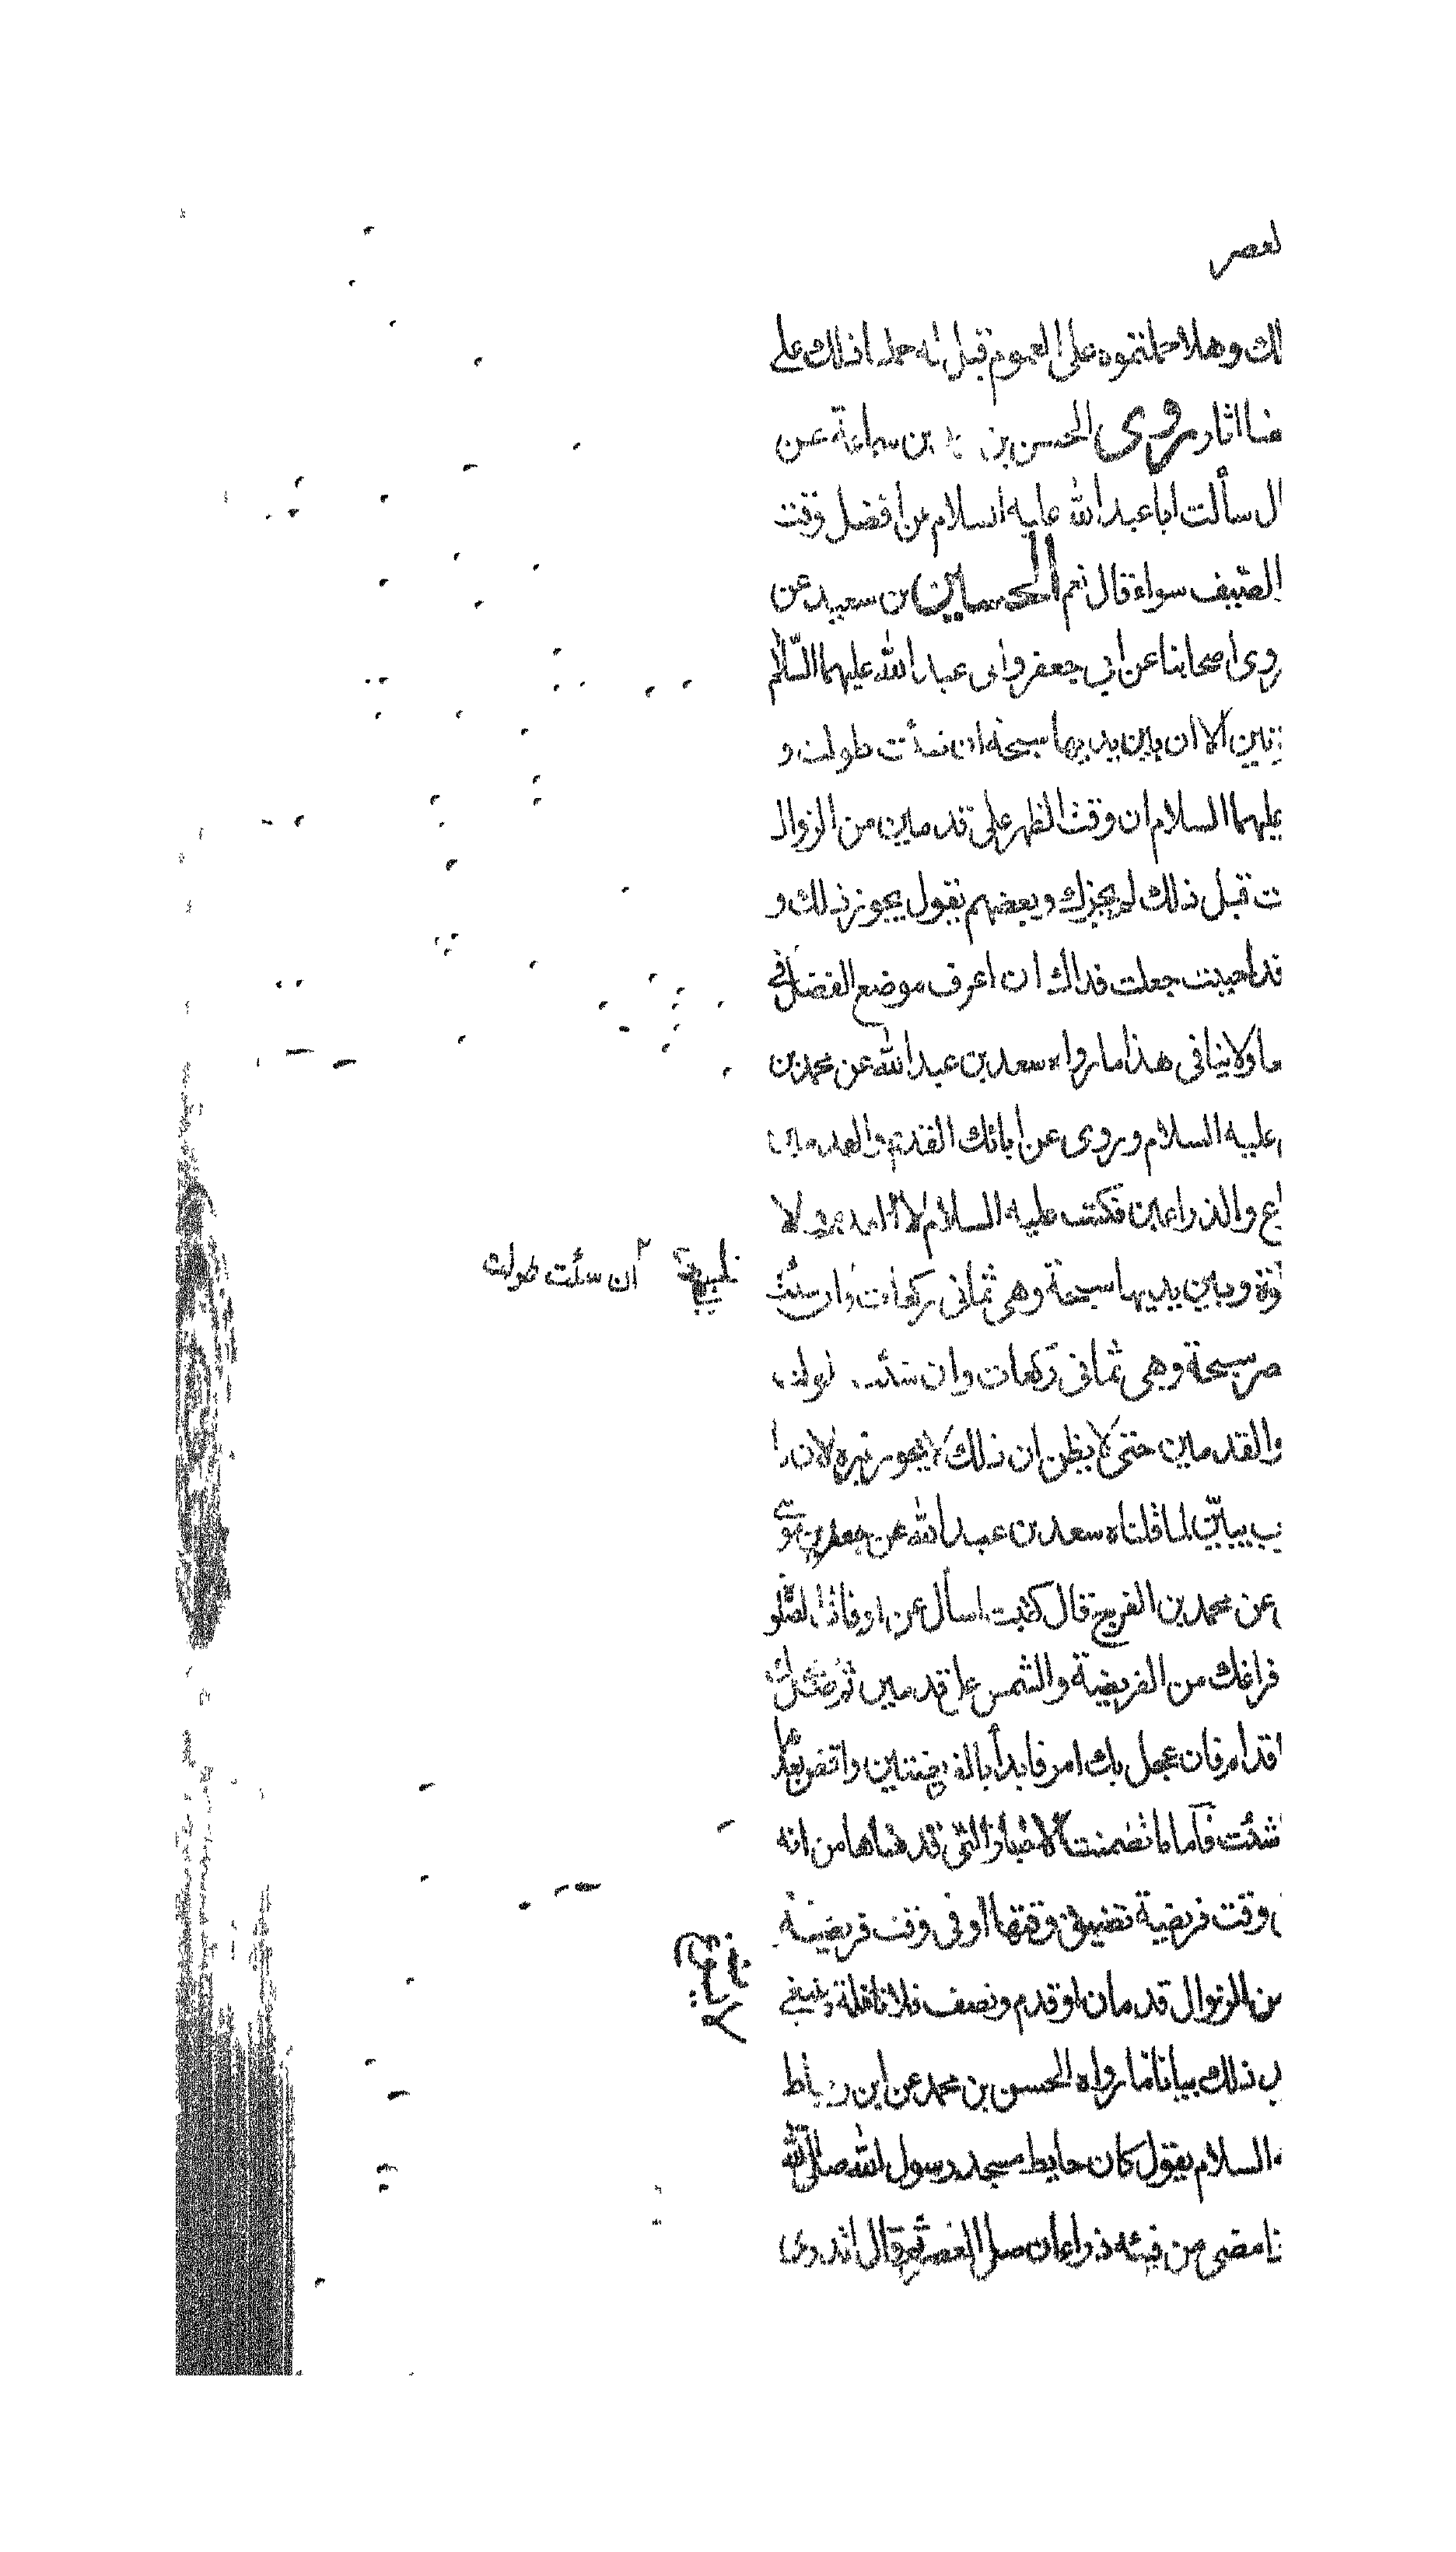 لعصر
لك وهلا حملتموه على العموم قيل له حملنا ذلك على
روى الحسن بن بن سماعة عن
ال سألت ابا عبد الله عليه السلام عن افضل وقت
الصيف سواء قال نعم الحسين بن سعيد عن
روى اصحابنا عن ابي جعفر وابى عبد الله عليهما السلام
الا ان بين يديها سبحة ان شئت طولت و
عليهما السلام ان وقت الظهر على قدمين من الزوال
ت قبل ذلك لم يجزك وبعضهم يقول يجوز ذلك و
قد احببت جعلت فداك ان اعرف موضع الفضل في
ما ولا ينافى هذا ما رواه سعد بن عبد الله عن محمد بن
عليه السلام وروى عن ابائك القدم والقدمين
اع والذراعين فكتب عليه السلام لا القدم ولا
وة وبين يديها سبحة وهى ثمانى ركعات وان شئت
ان شئت طولت
صر سبحة وهى ثمانى ركعات وان شئت طولت
والقدمين حتى لا يظن ان ذلك لا يجوز غيره لان
يبين لما قلناه سعد بن عبد الله عن جعفر بن موسى
عن محمد بن الفرج قال كتبت اسأل عن اوقات الصلو
فراغك من الفريضة والشمس على قدمين ثم صل
اقدام فان عجل بك امر فابدأ بالفريضتين واقض بعد
شئت فاما ما تضمنت الاخبار التى قد مناها من انه
وقت فريضة تضيق وقتها او فى وقت فريضة
من الزوال قدمان او قدم ونصف فلا نافلة
ذلك بيانا ما رواه الحسن بن محمد عن ابن رباط
السلام يقول كان حايط مسجد رسول الله صلى الله
مضى من فيئه ذراعان صلى العصر ثم قال اتدرى